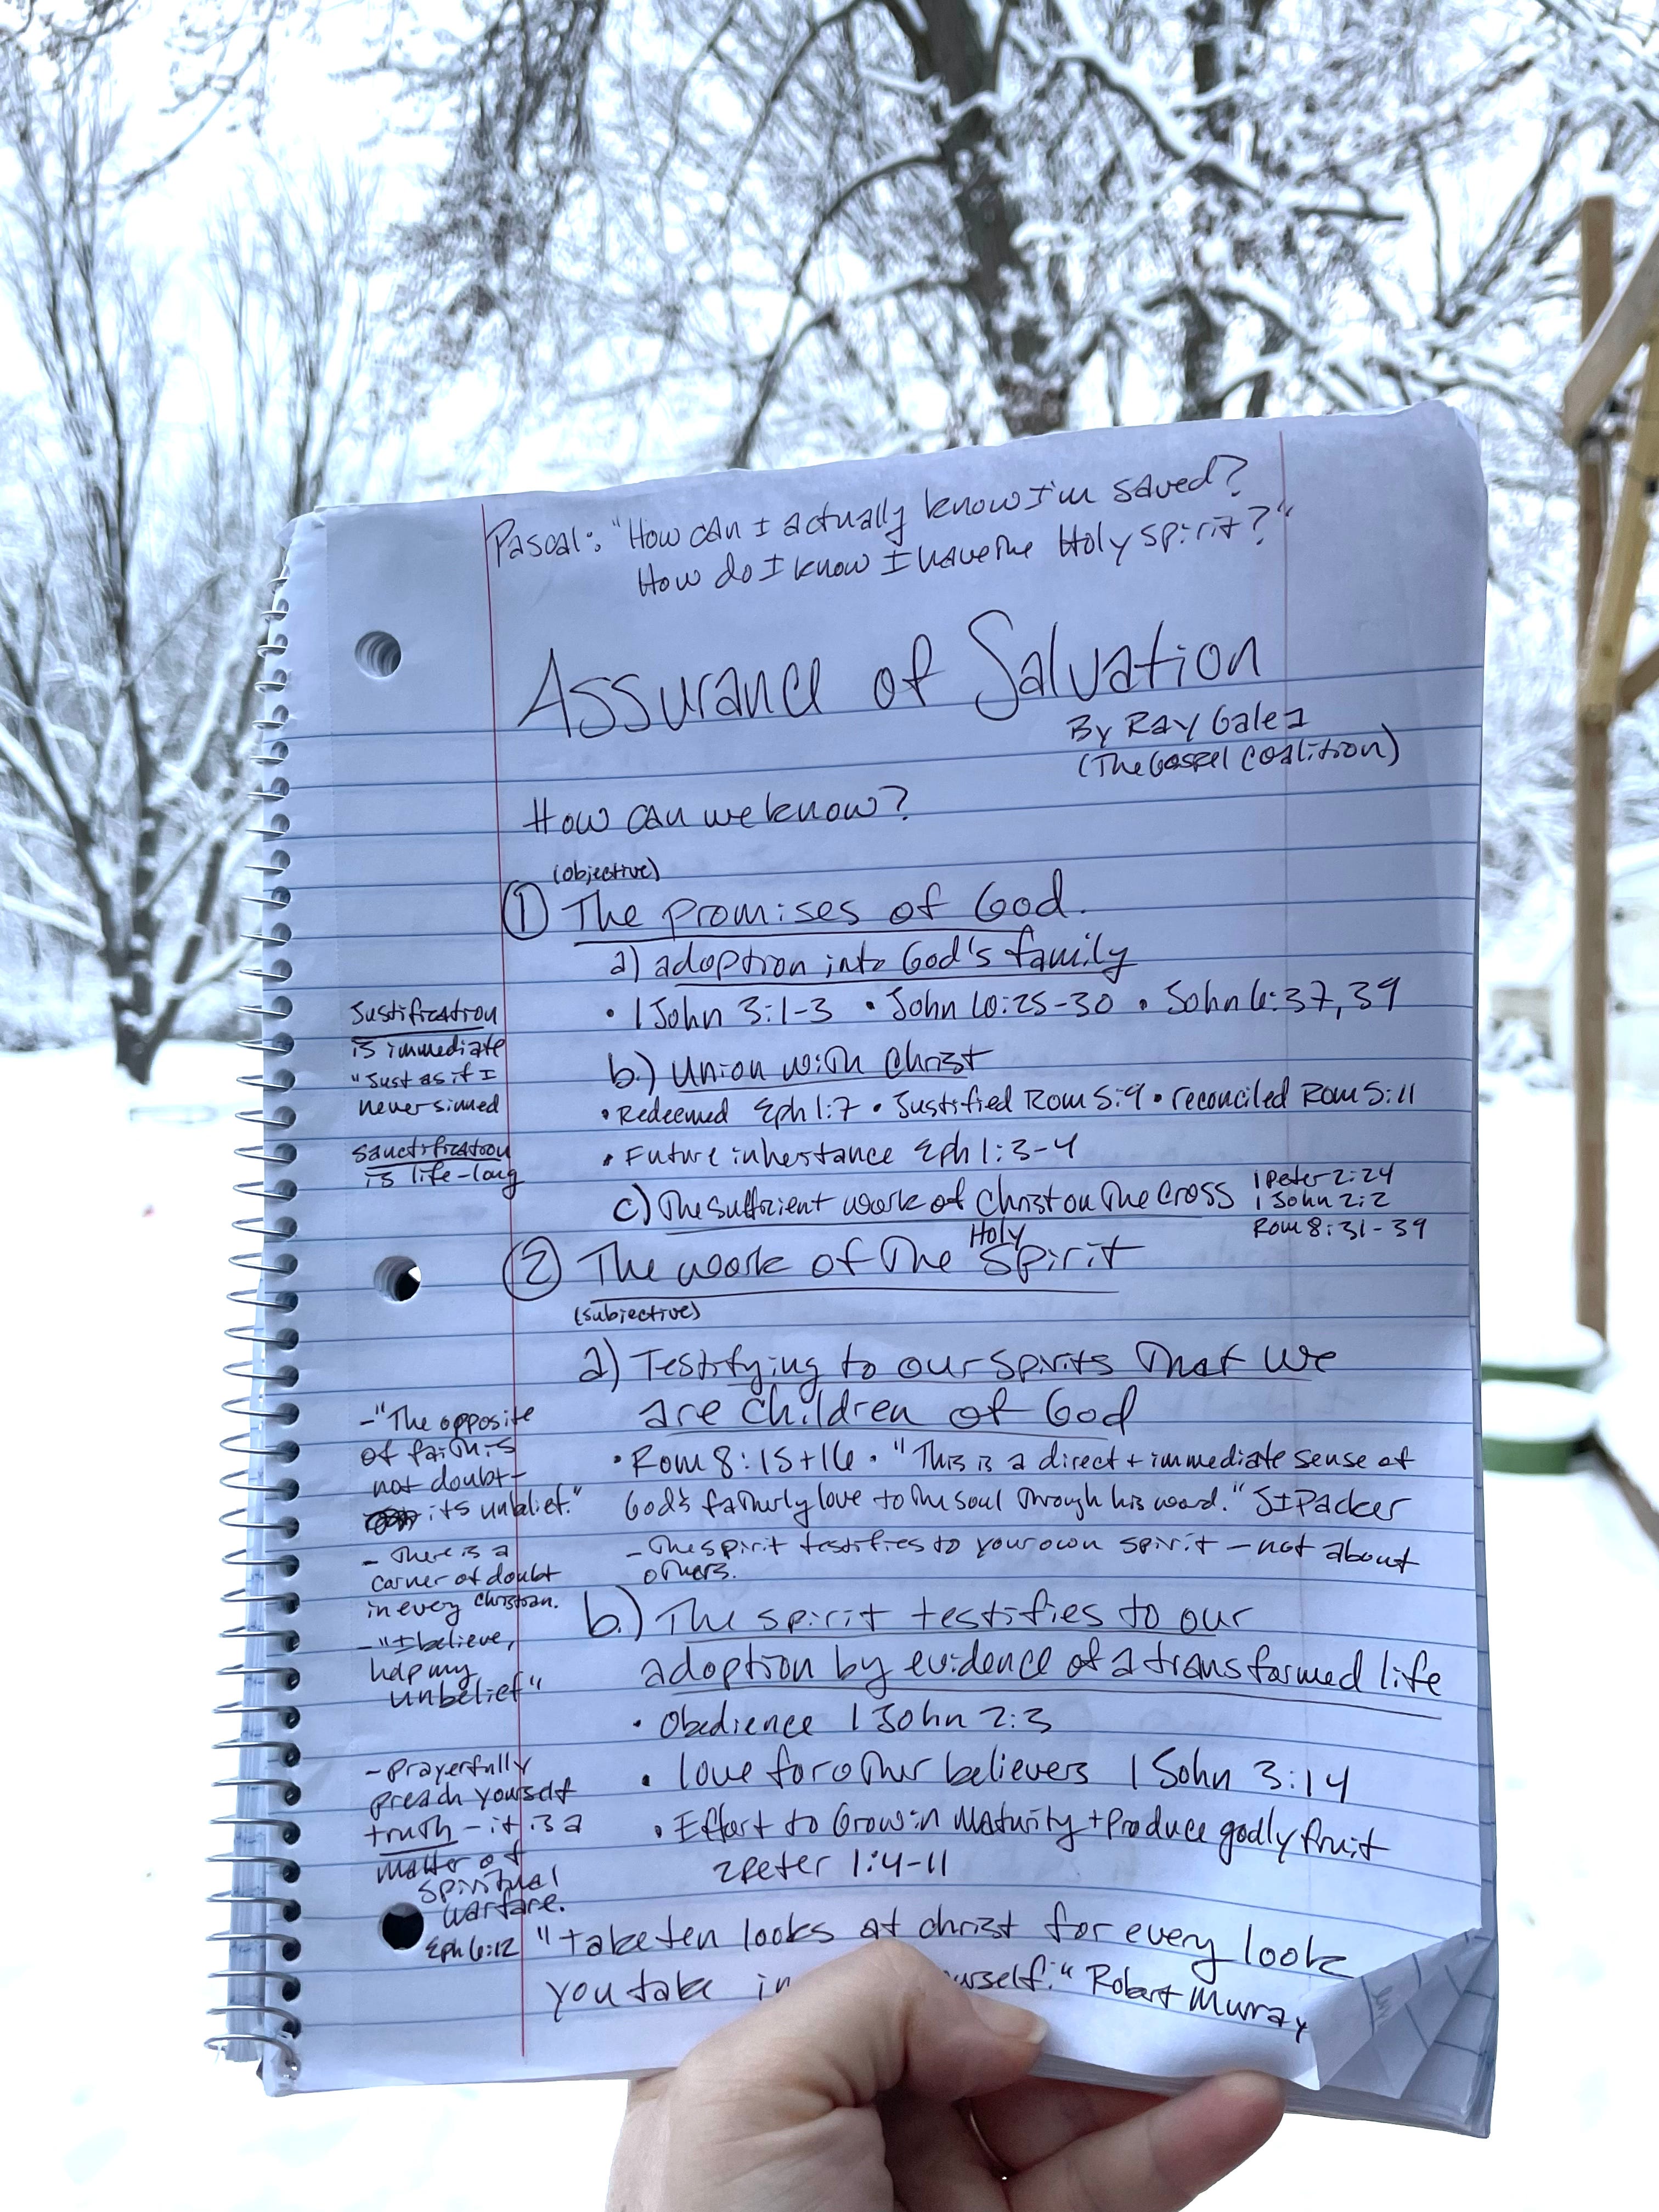 Pascal: "How can I actually know I'm saved?
How do I know I have the Holy Spirit?"
Assurance of Salvation
By Ray Galea
(The Gospel Coalition)
How can we know?
(objective)
① The promises of God.
a) adoption into God's family
• 1 John 3:1-3 • John 10:25-30 • John 6:37,39
b.) Union with Christ
• Redeemed Eph 1:7 • Justified Rom 5:9 • reconciled Rom 5:11
• Future inheritance Eph 1:3-4
c) The sufficient work of Christ on the Cross
1 Peter 2:24
1 John 2:2
Rom 8:31-39
Justification
is immediate
"Just as if I
never sinned
Sanctification
is life-long
② The work of the Holy Spirit
(subjective)
a) Testifying to our spirits that we
are children of God
• Rom 8:15+16 • "This is a direct + immediate sense of
God's fatherly love to the soul through his word." JI Packer
- The spirit testifies to your own spirit - not about
others.
b.) The spirit testifies to our
adoption by evidence of a transformed life
• Obedience 1 John 2:3
• love for other believers 1 John 3:14
• Effort to Grow in Maturity + produce godly fruit
2 Peter 1:4-11
- "The opposite
of faith is
not doubt -
its unbelief."
- There is a
corner of doubt
in every Christian.
- "I believe,
help my
unbelief"
- Prayerfully
preach yourself
truth - it is a
matter of
spiritual
warfare.
Eph 6:12
"take ten looks at christ for every look
you take Robert Murray